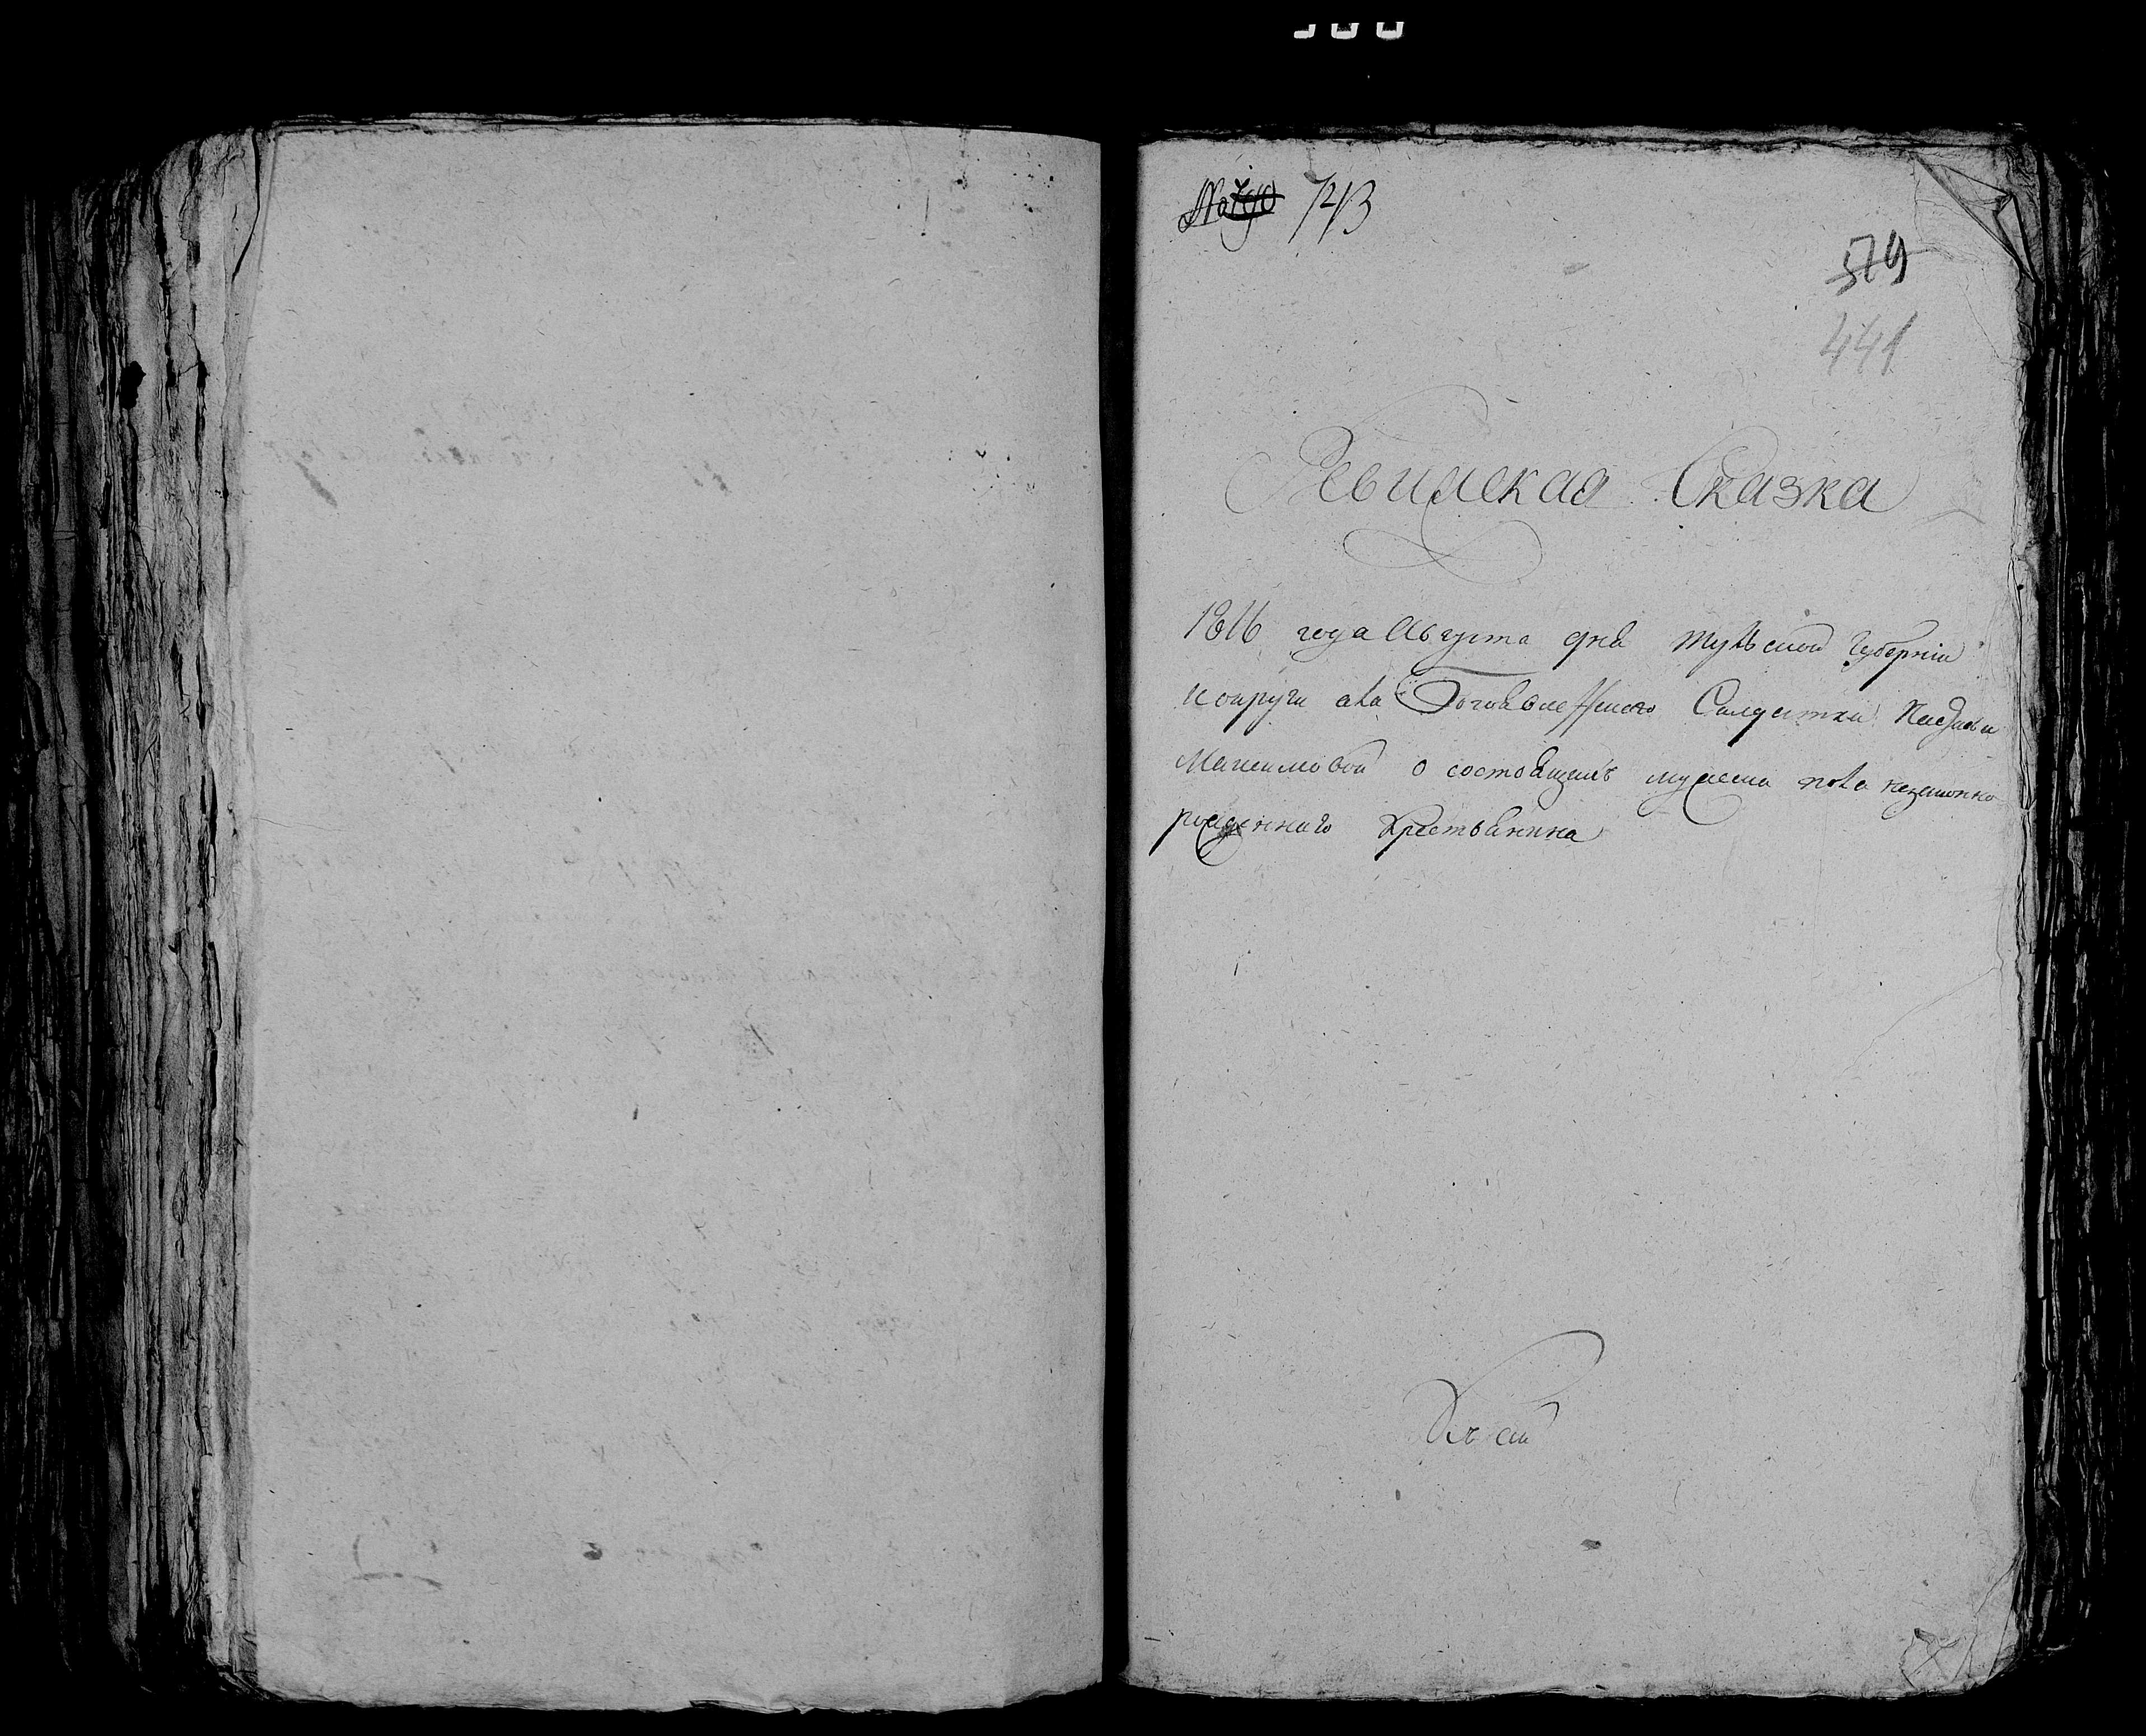 № 743
579
441
Ревижская Сказка
1816 года Августа дня Тульской Губернiи
и округи села Богоявленскаго Салдатки
Максимовой о состоящимъ мужеска пола незаконно
рожденнаго крестьянина